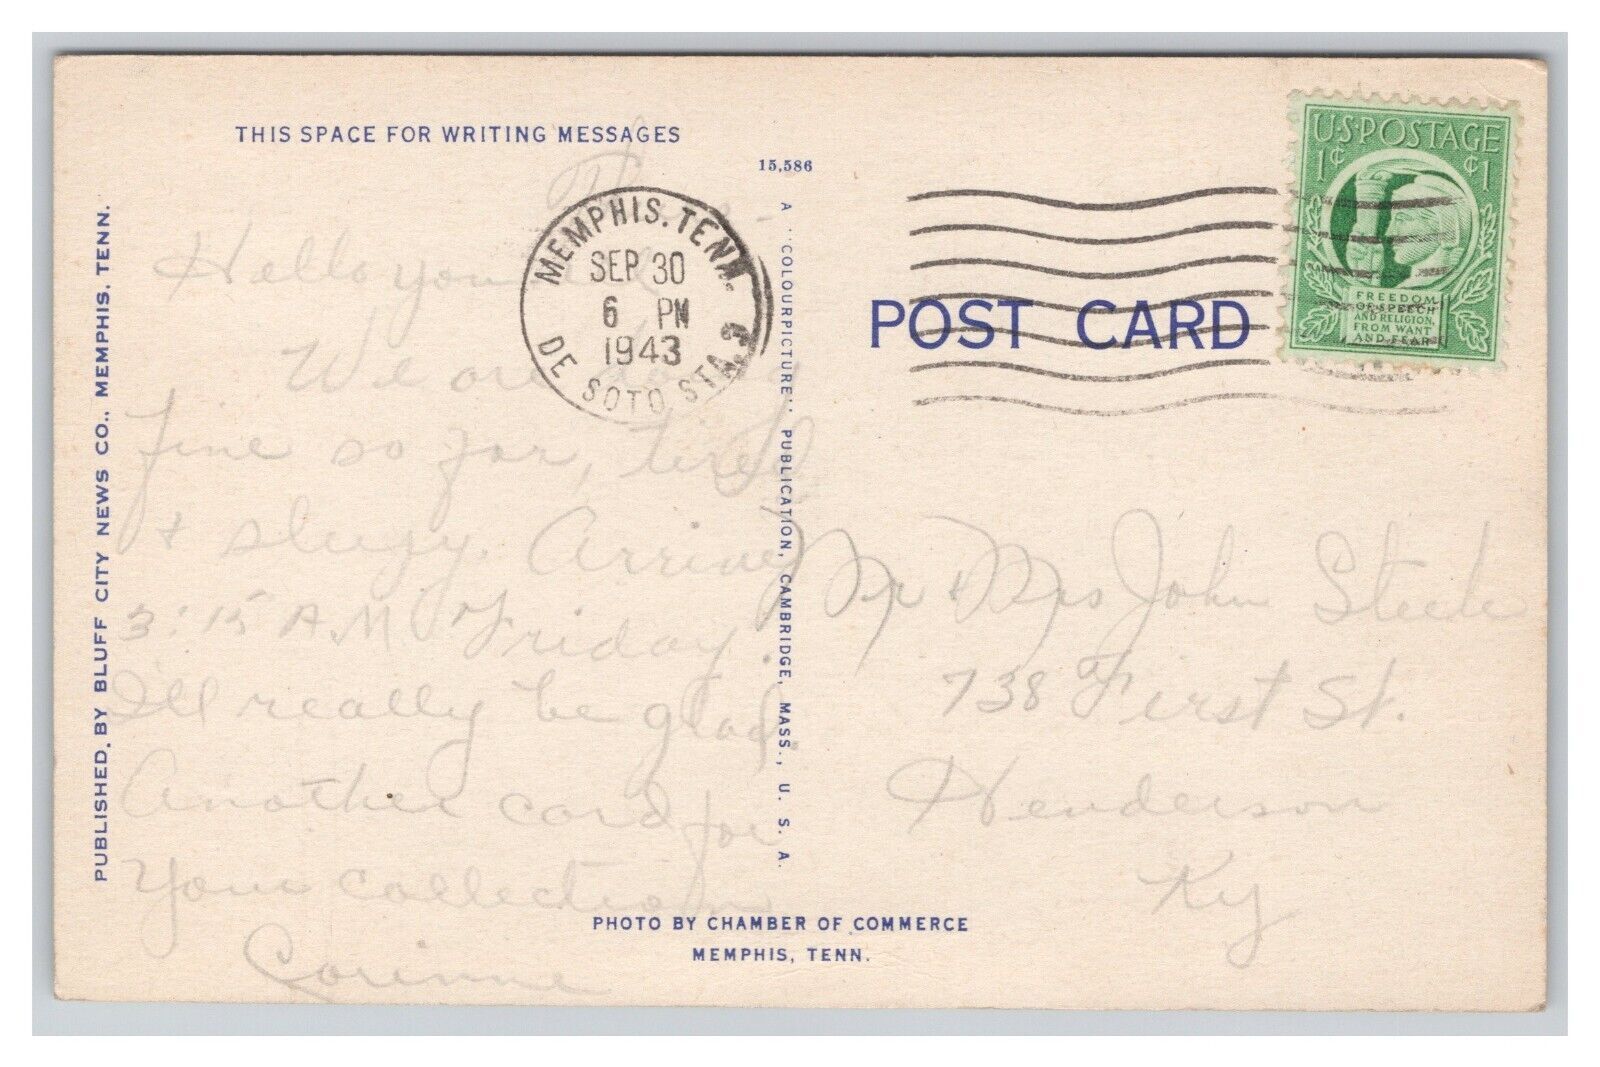 THIS SPACE FOR WRITING MESSAGES
15,586
PUBLISHED BY BLUFF CITY NEWS CO., MEMPHIS, TENN.
A "COLOURPICTURE" PUBLICATION, CAMBRIDGE, MASS., U. S. A.
MEMPHIS, TENN.
SEP 30
6 PM
1943
DE SOTO STA.
POST CARD
U·S·POSTAGE
1¢ ¢1
FREEDOM
OF SPEECH
AND RELIGION,
FROM WANT
AND FEAR
Hello you all
We are doing
fine so far, tired
+ sleepy. Arrive
3:15 AM Friday.
I'll really be glad.
Another card for
Your collection
Corinne
Mr + Mrs John Steele
738 First St.
Henderson
Ky
PHOTO BY CHAMBER OF COMMERCE
MEMPHIS, TENN.